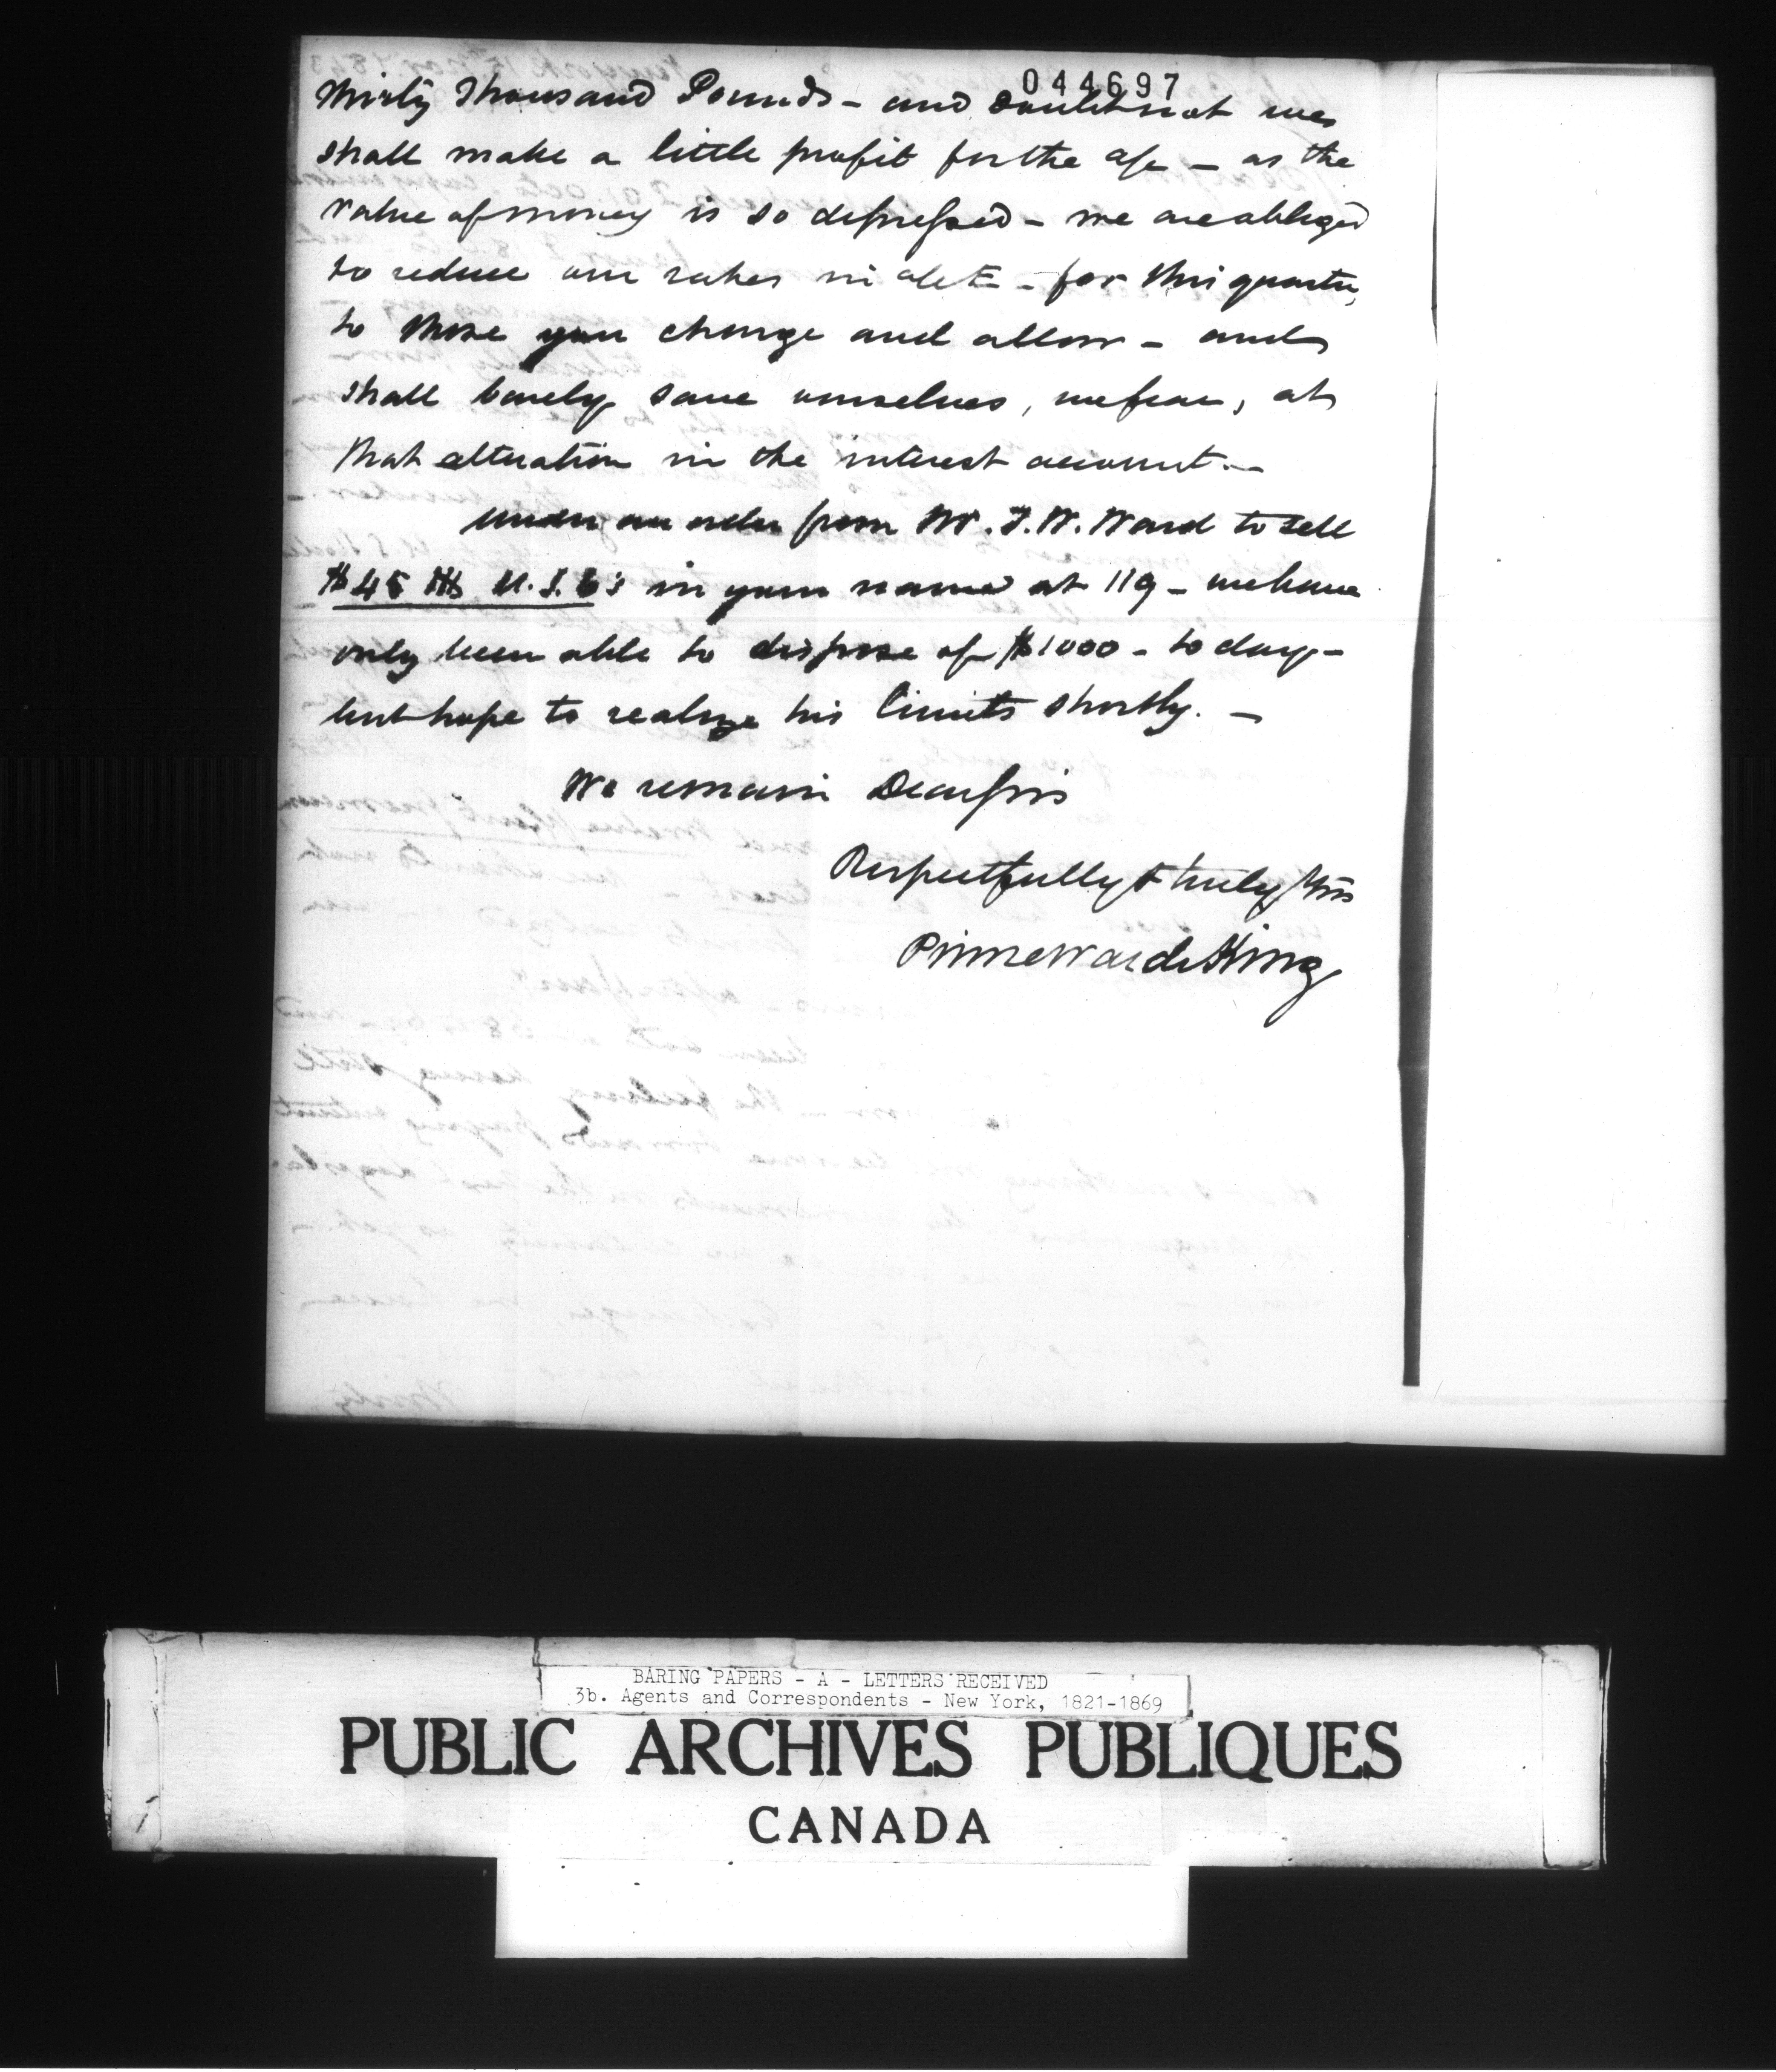 044697
thirty thousand Pounds - and doubt not we
shall make a little profit for the a/c - as the
value of money is so depressed - we are obliged
to reduce our rates in a/ct - for this quarter,
to those you charge and allow - and
shall barely save ourselves, we fear, at
that alteration in the interest account. -
Under an order from Mr. T. W. Ward to sell
$45 U.S. 6's in your name at 119 - we have
only been able to dispose of $1000 - to day -
but hope to realize his limits shortly. -
We remain Dear Sirs
Respectfully & truly Yrs
Prime Ward & King
BARING PAPERS - A - LETTERS RECEIVED
3b. Agents and Correspondents - New York, 1821-1869
PUBLIC ARCHIVES PUBLIQUES
CANADA